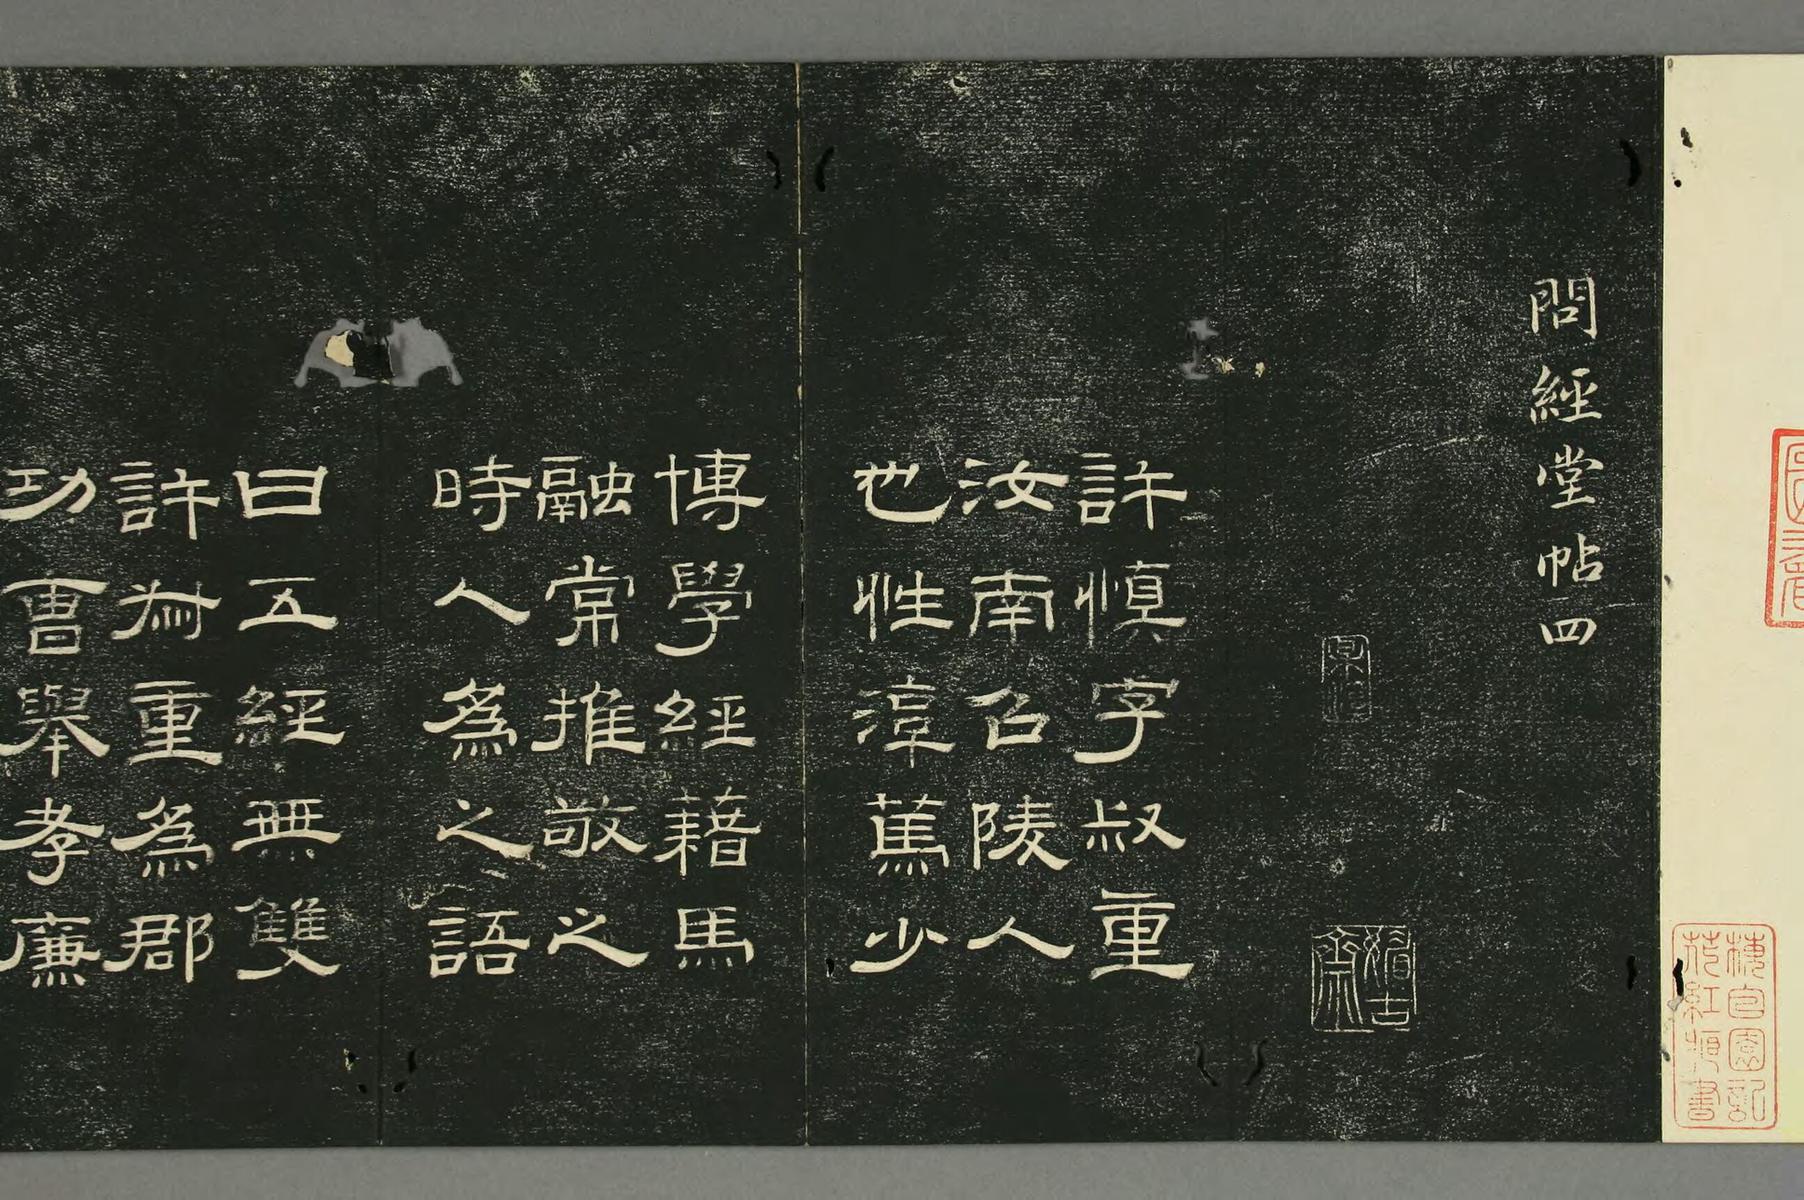 問經堂帖四
許慎字叔重
汝南召陵人
也性淳篤少
博學經藉馬
融常推敬之
時人爲之語
曰五經無雙
許尗重爲郡
功曹舉孝廉